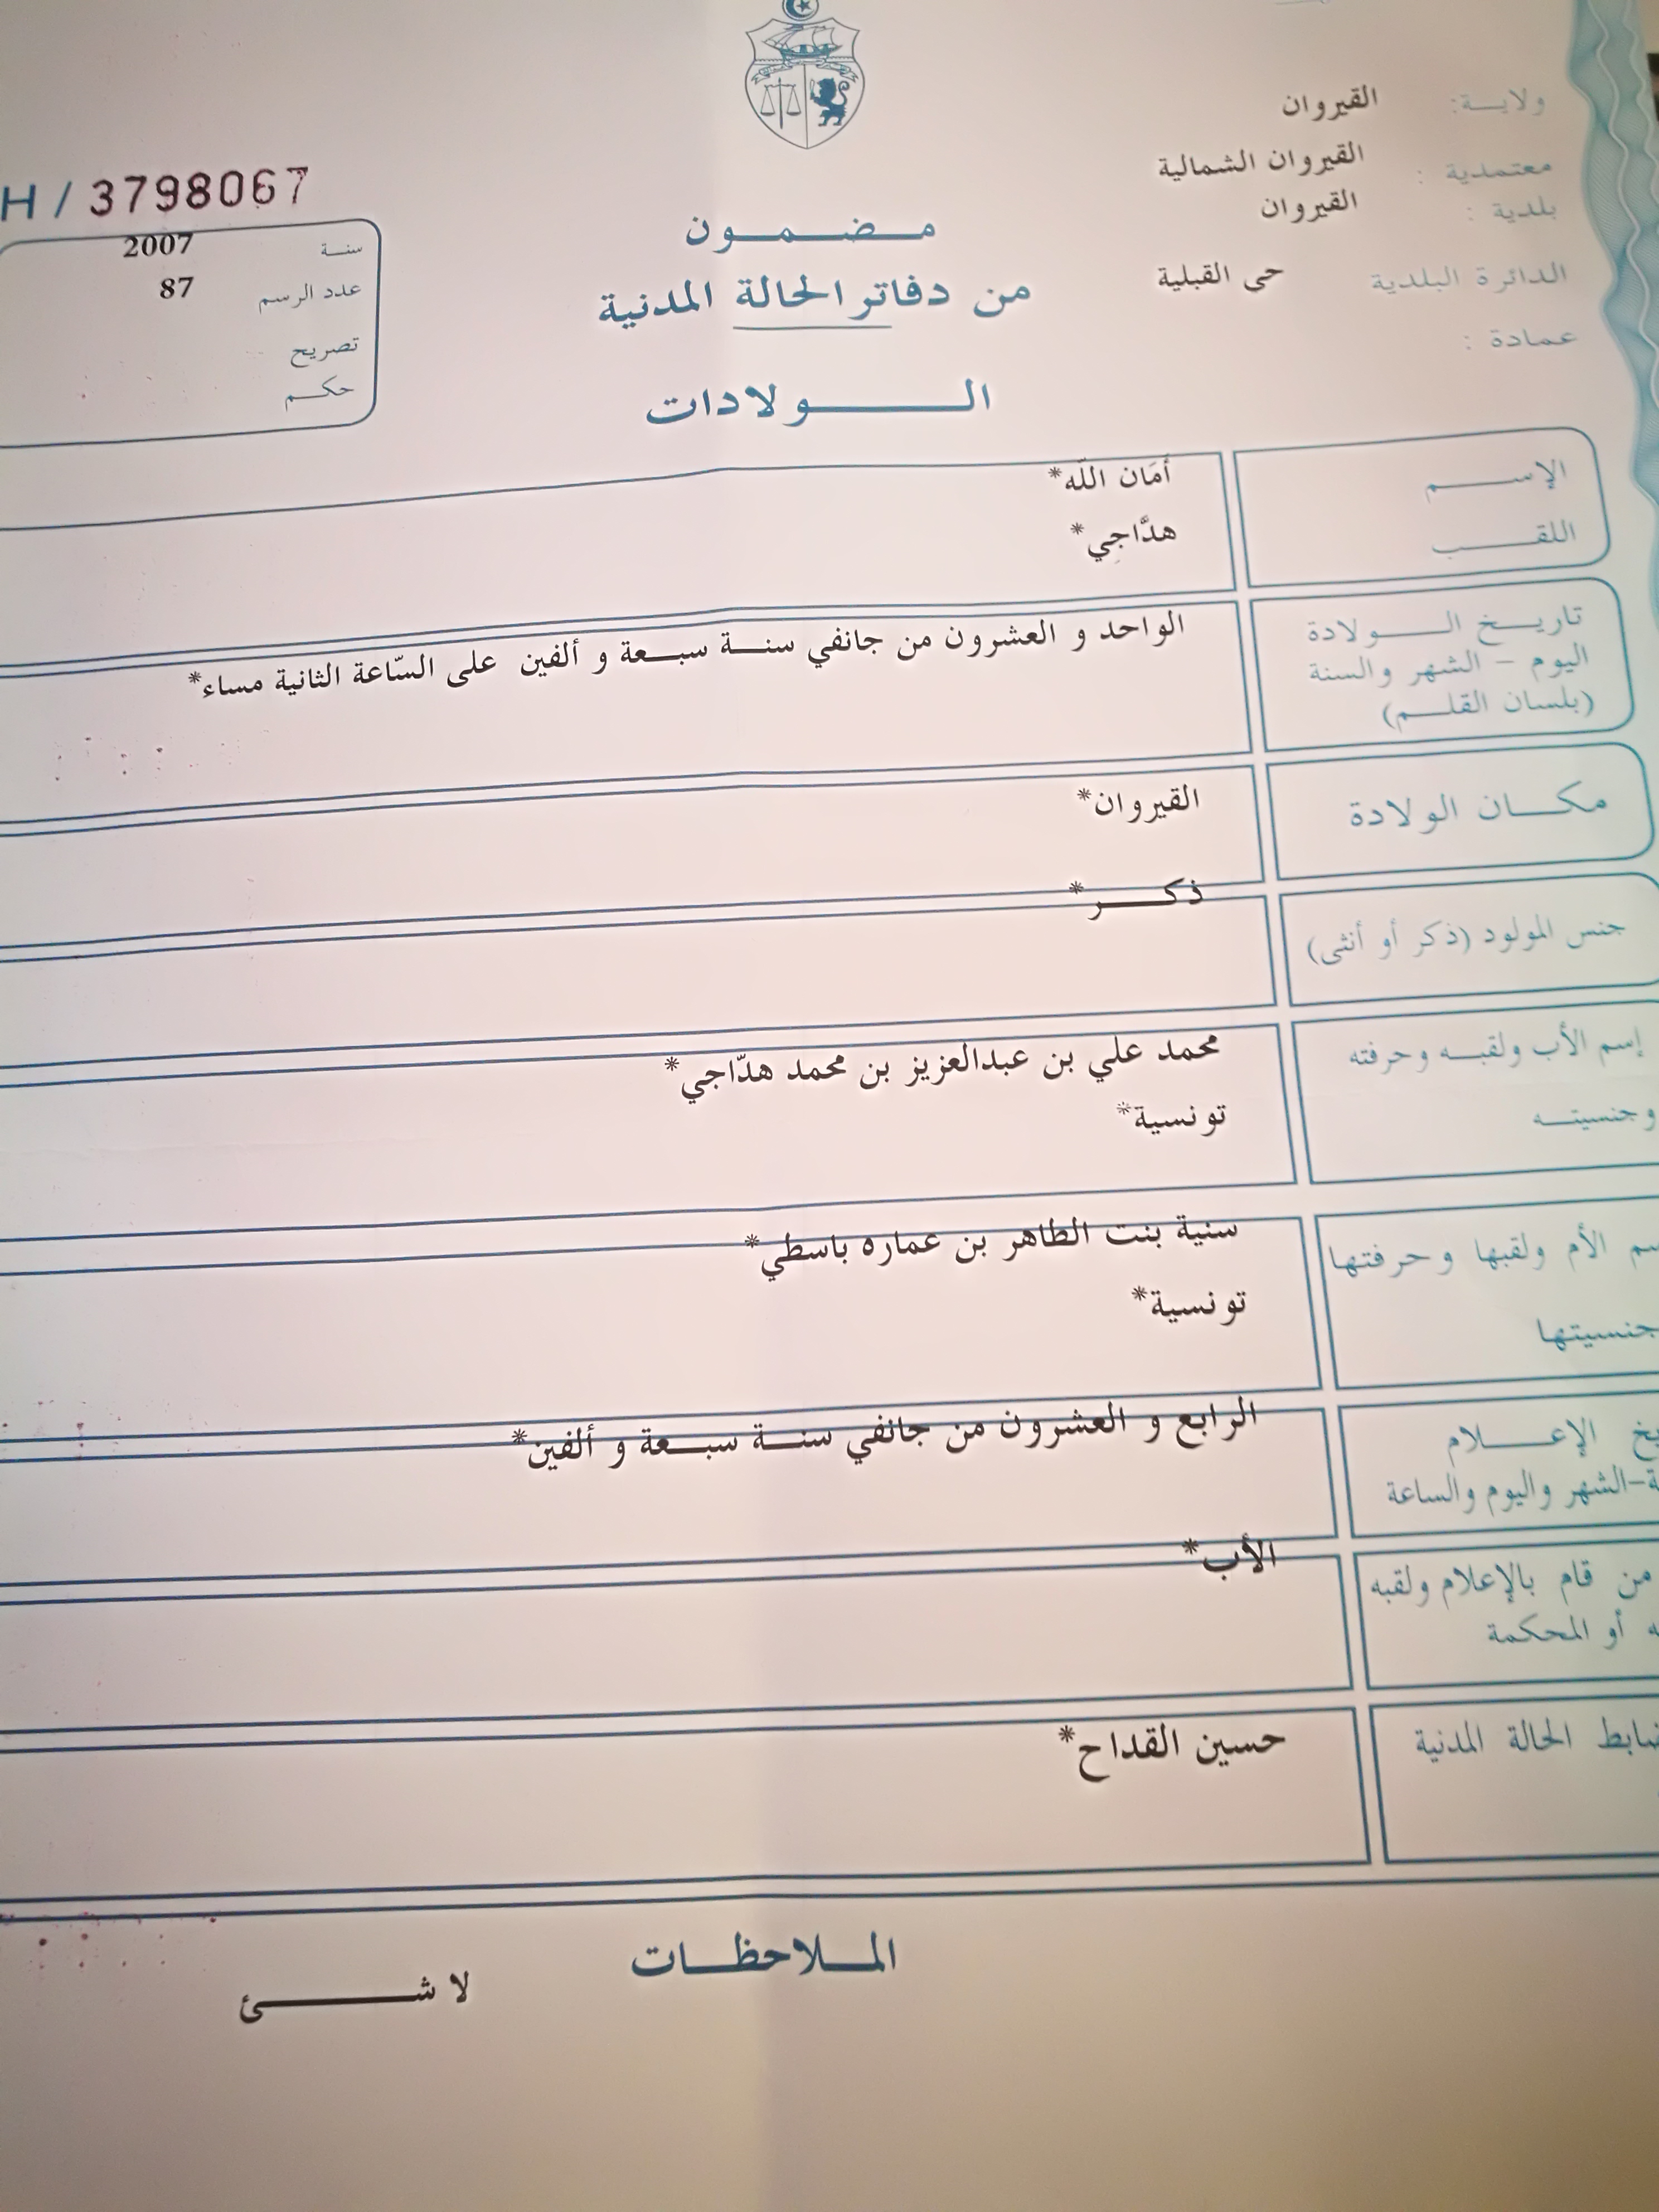 ولاية: القيروان
معتمدية : القيروان الشمالية
بلدية : القيروان
الدائرة البلدية حى القبلية
عمادة :
H / 3798067
سنة 2007
عدد الرسم 87
تصريح
حكم
مضمون
من دفاتر الحالة المدنية
الولادات
الإسم أمَان اللّه*
اللقب هدَّاجِي*
تاريخ الولادة الواحد و العشرون من جانفي سنة سبعة و ألفين على السّاعة الثانية مساء*
اليوم – الشهر والسنة
(بلسان القلم)
مكان الولادة القيروان*
جنس المولود (ذكر أو أنثى) ذكر*
إسم الأب ولقبه وحرفته محمد علي بن عبدالعزيز بن محمد هدّاجي*
وجنسيته تونسية*
سم الأم ولقبها وحرفتها سنية بنت الطاهر بن عماره باسطي*
جنسيتها تونسية*
يخ الإعلام الرابع و العشرون من جانفي سنة سبعة و ألفين*
ة-الشهر واليوم والساعة
من قام بالإعلام ولقبه الأب*
ه أو المحكمة
ضابط الحالة المدنية حسين القداح*
الملاحظات
لا شئ